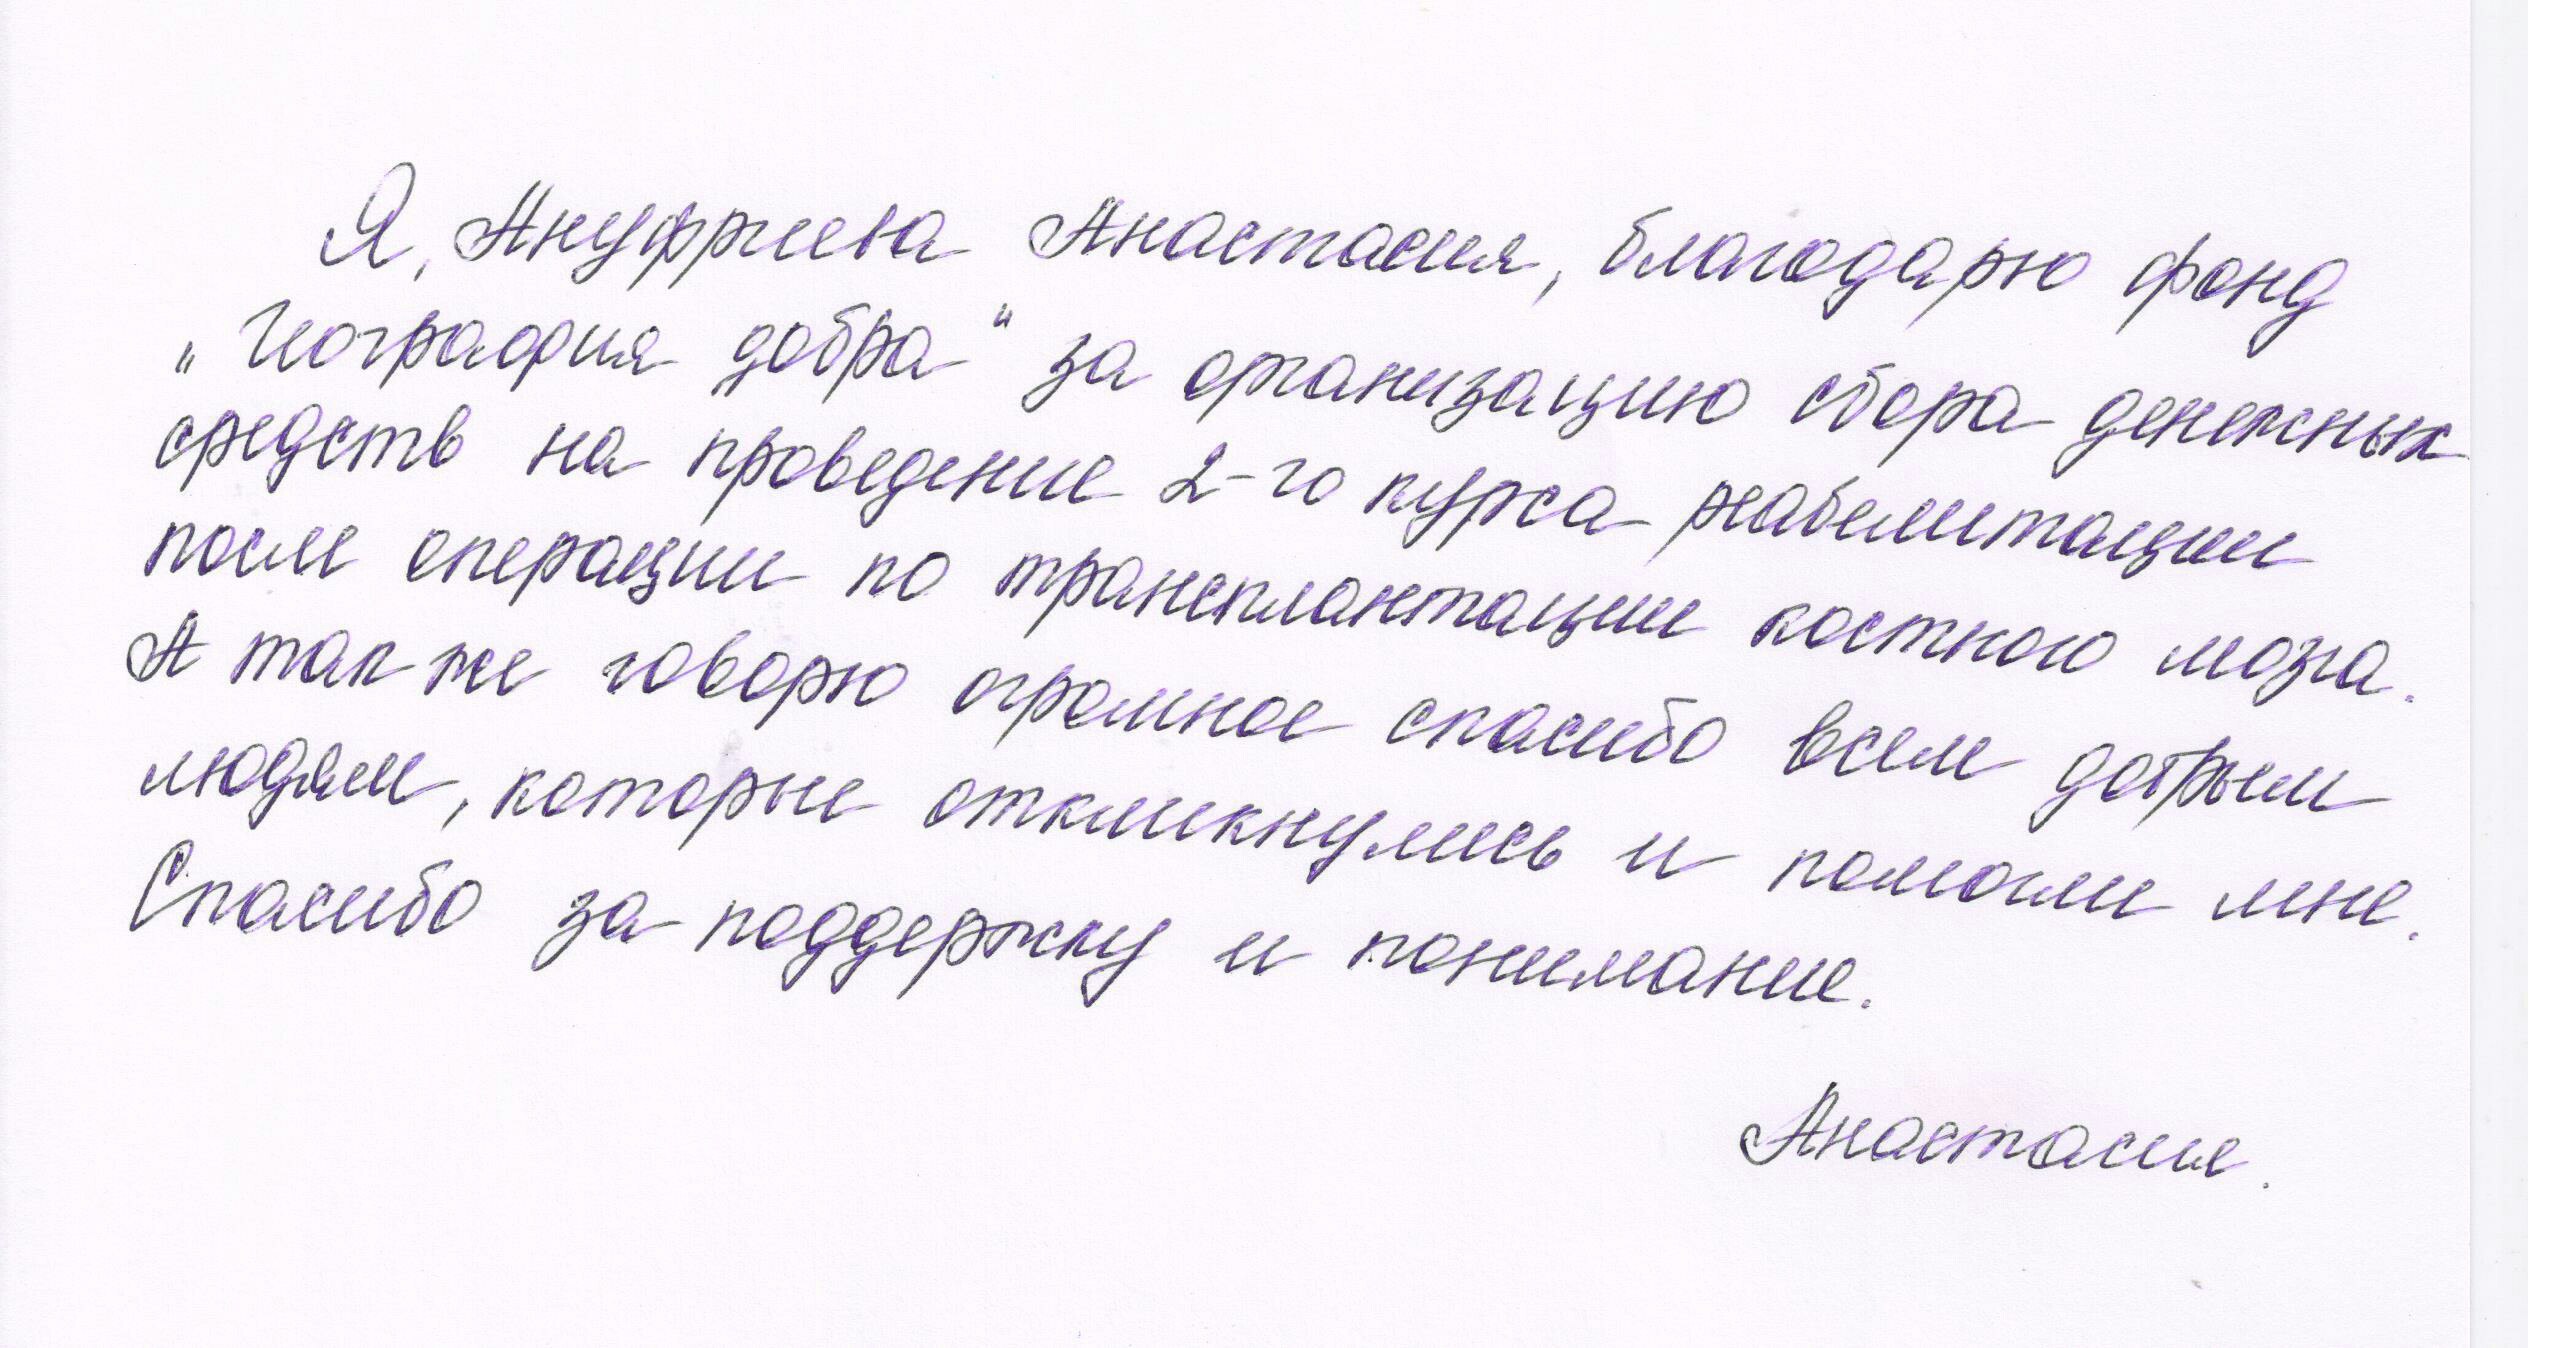 Я, Ануфриева Анастасия, благодарю фонд
„География добра“ за организацию сбора денежных
средств на проведение 2-го курса реабилитации
после операции по трансплантации костного мозга.
А так же говорю огромное спасибо всем добрым
людям, которые откликнулись и помогли мне.
Спасибо за поддержку и понимание.
Анастасия.